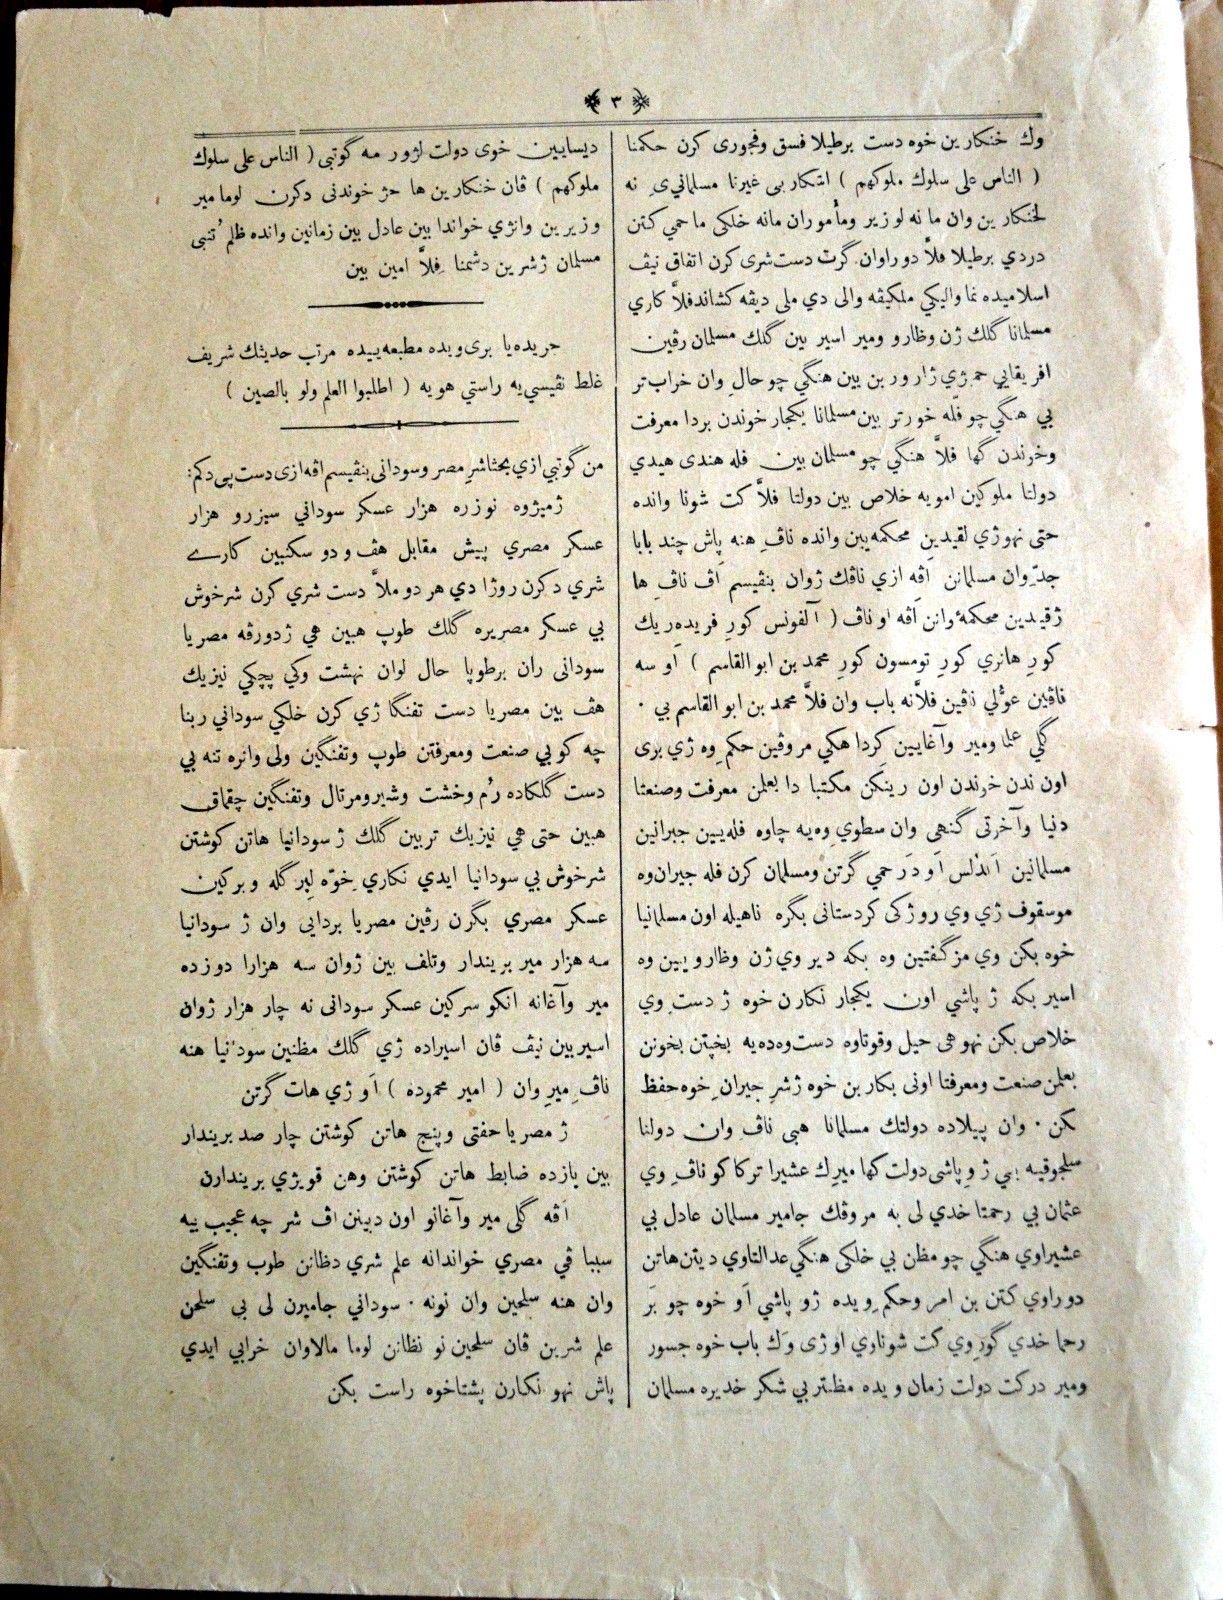 ﴿ ٣ ﴾
وك خنكارين خوه دست برطيلا فسق وفجورى كرن حكمنا
( الناس على سلوك ملوكهم ) اشكار بى غيرنا مسلمانيِ نه
لخنكارين وان ما نه لوزير ومأموران مانه خلكى ماحمي كتن
دردي برطيلا فلاَّ دوراوان كرت دست شرى كرن اتفاق نيڤ
اسلاميده نما واليكي ملكيڤه والى دي ملى ديڤه كشاندفلاَّ كاري
مسلمانا گلك ژن وظارو ومير اسير بين گلك مسلمان رڤين
افريقايي حمژي ژارورين بين هنگي چو حالِ وان خراب تر
بي هنگي چو فله خورتر بين مسلمانا يكجار خوندن بردا معرفت
وخوندن گها فلاَّ هنگي چو مسلمان بين فله هندى هيدي
دولتا ملوكين امويه خلاص بين دولتا فلاَّ كت شونا وانده
حتى نهوژي لقيدين محكمه‌يين وانده ناڤِ هنه پاش چند بابا
جدِّ وان مسلمانن اَڤه ازي ناڤك ژوان بنڤيسم اڤ ناڤِ ها
ژقيدين محكمهٔ وانن اَڤه او ناڤ ( آلفونس كورِ فريدەريك
كورِ هانري كورِ تومسون كورِ محمد بن ابو القاسم ) اَو سه
ناڤين عوُّلي ناڤين فلاَّنه باب وان فلاَّ محمد بن ابو القاسم بي ·
گلي علما ومير وآغايين كردا هكي مروڤين حكم وه ژي برى
اون ندن خوندن اون رينكن مكتبا دا بعلمن معرفت وصنعتا
دنيا وآخرتى گنهى وان سطوي وه‌يه چاوه فله‌يين جيرانين
مسلمانين اَندُلس اَو دَر حمي گرتن ومسلمان كرن فله جيران وه
موسقوف ژي وي روژكى كردستانى بگره ناهيله اون مسلمانيا
خوه بكن وي مزگفتين وه بكه دير وي ژن وظارويين وه
اسير بكه ژ پاشي اون يكجار نكارن خوه ژ دستِ وي
خلاص بكن نهو هى حيل وقوتاوه دست وه‌ده‌يه بخپتن بخونن
بعلمن صنعت ومعرفتا اونى بكارين خوه ژشرِ جيرانِ خوه حفظ
بكن · وان پيلاده دولتك مسلمانا هبى ناڤِ وان دولتا
سلجوقيه بي ژ وپاشى دولت كها ميرك عشيرا تركا كو ناڤِ وي
عثمان بي رحمتا خدي لى به مروڤك جامير مسلمان عادل بي
عشيراوي هنگي چو مظن بي خلكى هنگي عدالتاوي ديتن هاتن
دوراوي كتن بن امر وحكمِ ويده ژو پاشي اَو خوه چو بَر
رحما خدي كورِ وي كت شوناوي او ژى وَك باب خوه جسور
ومير دركت دولت زمان ويده مظنتر بي شكر خديره مسلمان
ديسايين خوى دولت لژور مه گوتبى ( الناس على سلوك
ملوكهم ) ڤان خنكارين ها حژ خوندنى دكرن لوما مير
وزيرين وانژي خواندا بين عادل بين زمانين وانده ظلم ُتنبى
مسلمان ژشرين دشمنا فلاَّ امين بين
جريده‌يا برى وبده مطبعه‌ييده مرتب حديثك شريف
غلط نڤيسي‌يه راستي هويه ( اطلبوا العلم ولو بالصين )
من گوتبي ازي بحثاشرِ مصر وسودانى بنڤيسم اڤه ازى دست پى دكم:
ژميژوه نوزره هزار عسكر سوداني سيزرو هزار
عسكر مصري پيش مقابل هڤ ودو سكنيين كارے
شري دكرن روژا دي هر دو ملاَّ دست شري كرن شرخوش
بي عسكر مصريره گلك طوپ هبين هي ژدورڤه مصريا
سودانى ران برطوپا حال لوان نهشت وكي پچكي نيزيك
هڤ بين مصريا دست تفنگا ژي كرن خلكي سوداني ربنا
چه كو بي صنعت ومعرفتن طوپ وتفنگين ولى وانره تنه بي
دست گلكاده رُم وخشت وشيرومرتال وتفنگين چقماق
هبين حتى هي نيزيك تربين گلك ژ سودانيا هاتن كوشتن
شرخوش بي سودانيا ايدي نكاري خوّه لبر گله وبركين
عسكر مصري بگرن رڤين مصريا بردايى وان ژ سودانيا
سه هزار مير بريندار وتلف بين ژوان سه هزارا دوزده
مير وآغانه انكو سركين عسكر سودانى نه چار هزار ژوان
اسير بين نيڤ ڤان اسيراده ژي گلك مظنين سودانيا هنه
ناڤِ ميرِ وان ( امير محموده ) اَو ژي هات گرتن
ژ مصريا حفتى وپنج هاتن كوشتن چار صد بريندار
بين يازده ضابط هاتن كوشتن وهن قويژي بريندارن
اَڤه گلى مير وآغانو اون دبينن اڤ شر چه عجيب بيه
سببا ڤي مصري خواندانه علم شري دظانن طوب وتفنگين
وان هنه سلحين وان نونه · سوداني جاميرن لى بى سلحن
علم شرين ڤان سلحين نو نظانن لوما مالاوان خرابي ايدي
پاش نهو نكارن پشتاخوه راست بكن